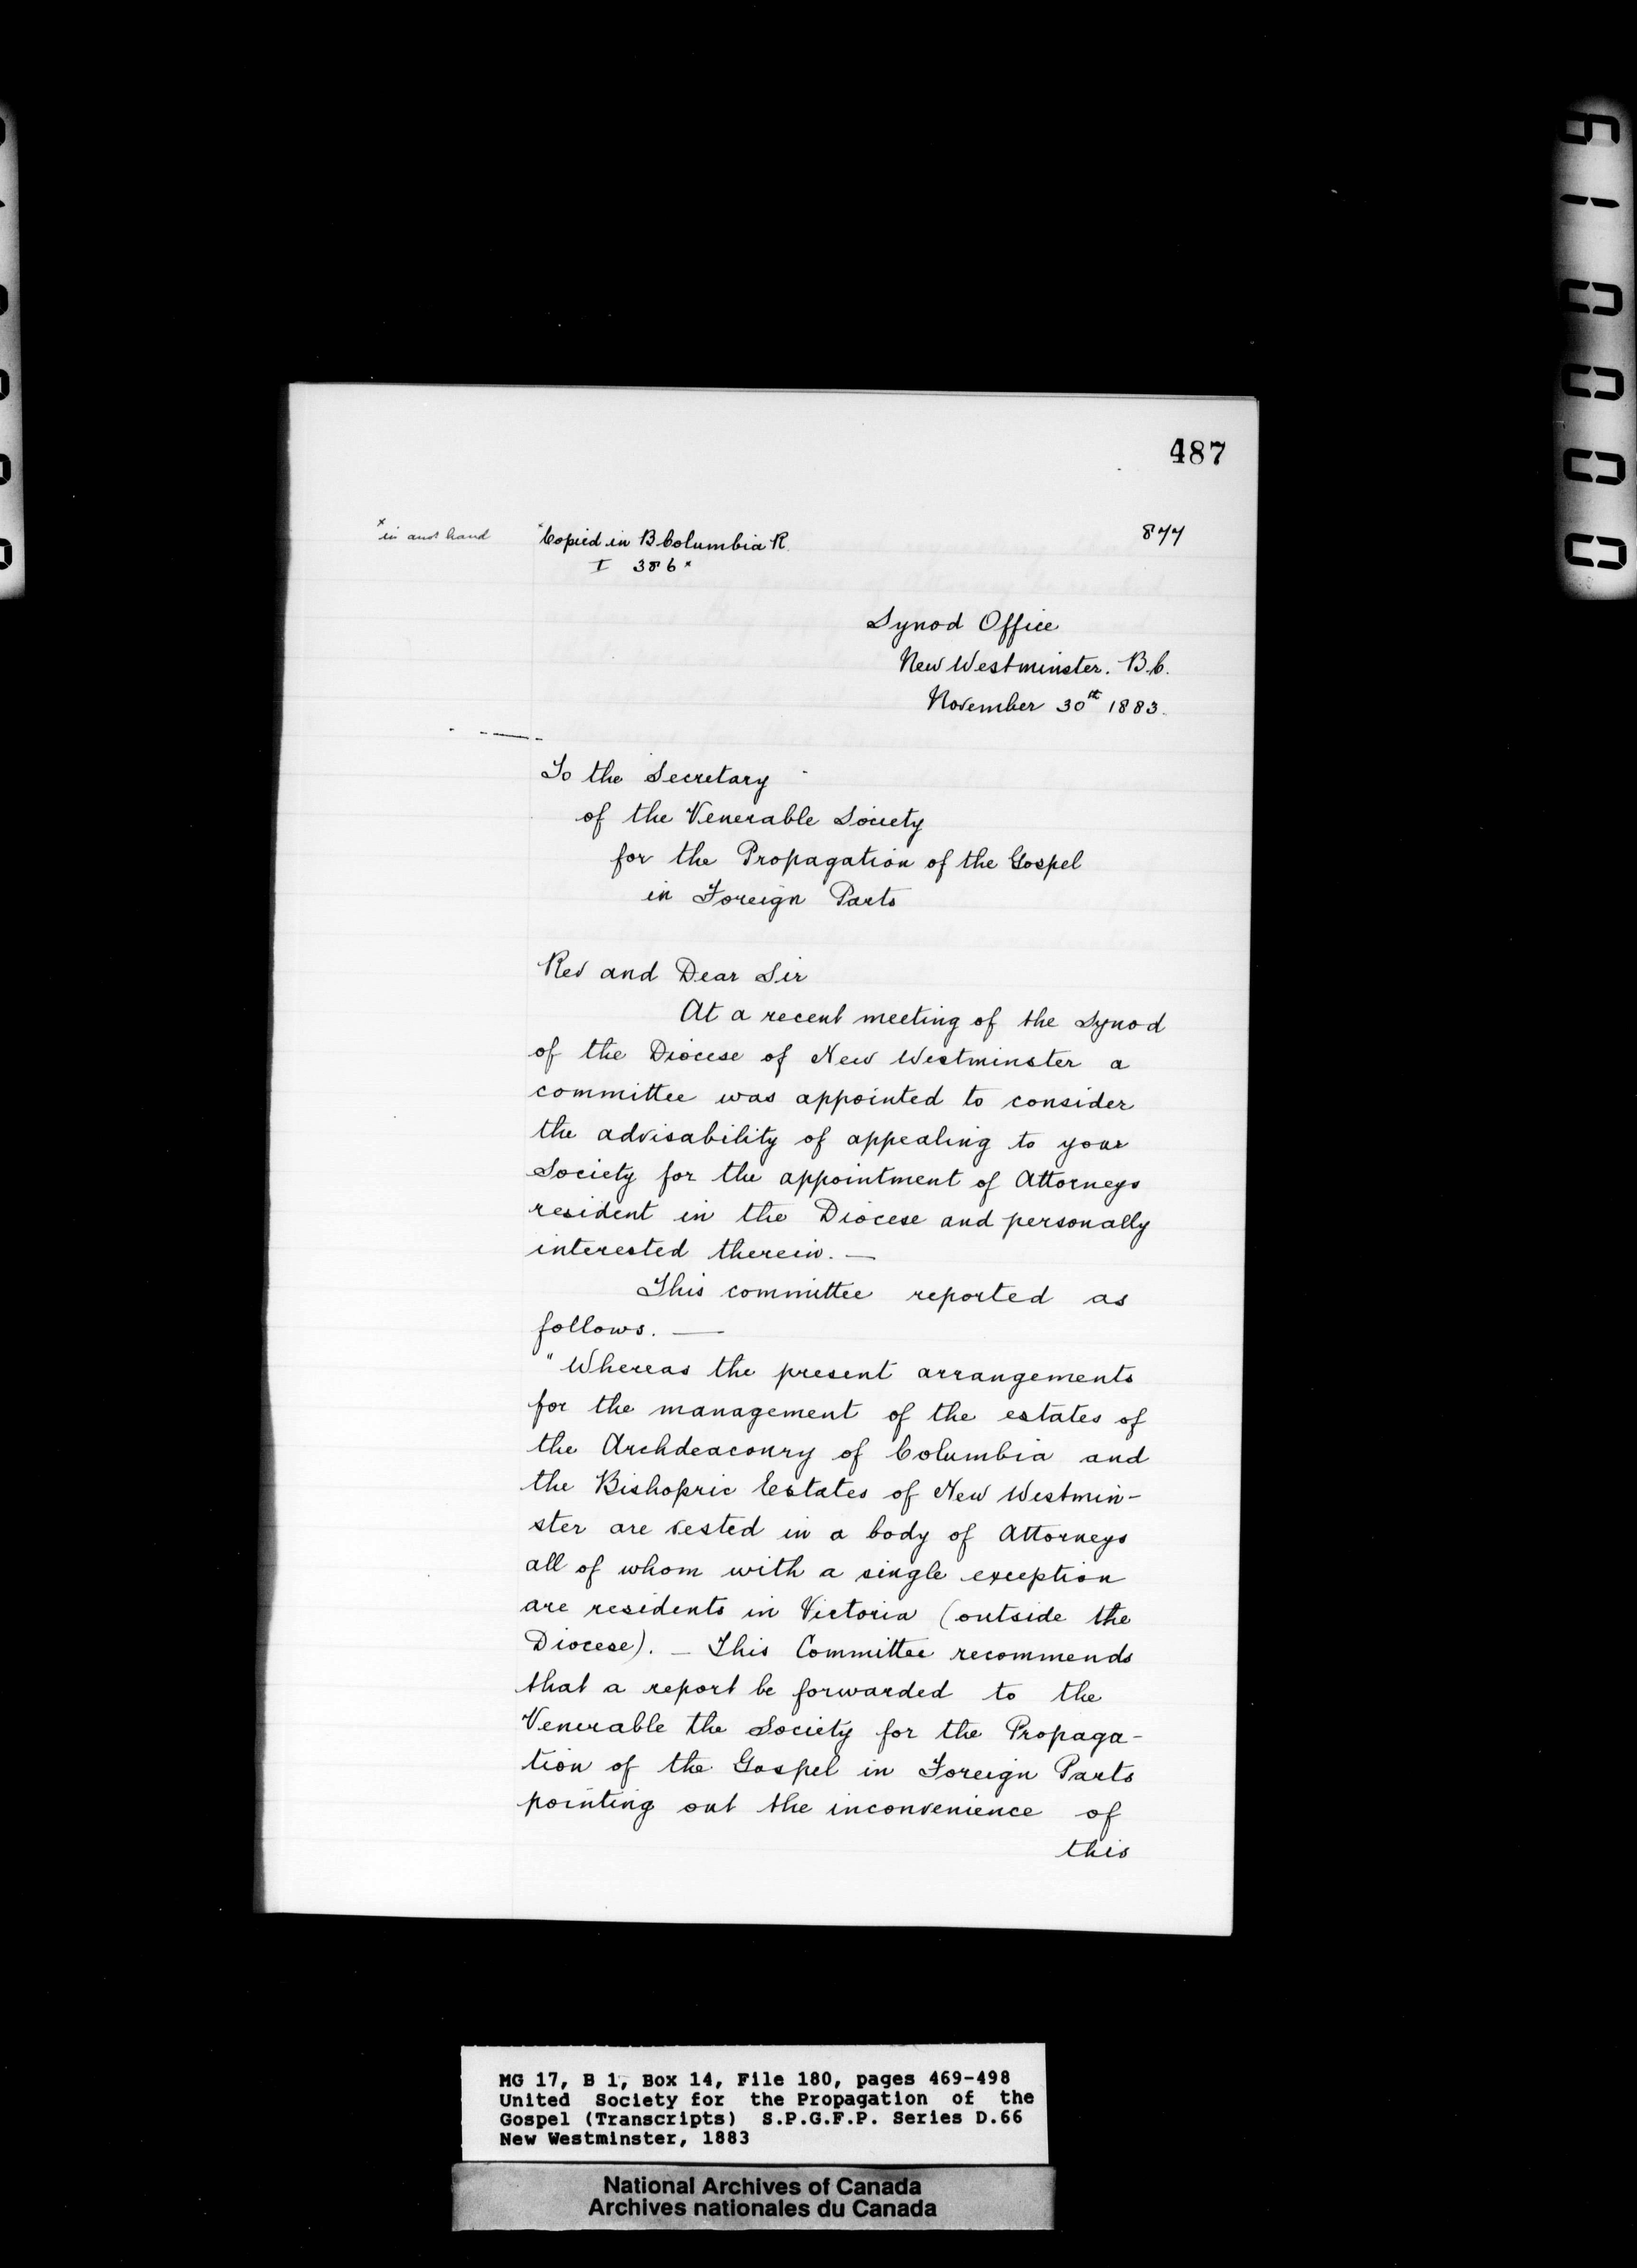 487
x in anor hand
x Copied in B Columbia R.
I 386 x
877
Synod Office
New Westminster. B.C.
November 30th 1883.
To the Secretary
of the Venerable Society
for the Propagation of the Gospel
in Foreign Parts
Rev and Dear Sir
At a recent meeting of the Synod
of the Diocese of New Westminster a
committee was appointed to consider
the advisability of appealing to your
Society for the appointment of Attorneys
resident in the Diocese and personally
interested therein. —
This committee reported as
follows. —
"Whereas the present arrangements
for the management of the estates of
the Archdeaconry of Columbia and
the Bishopric Estates of New Westmin-
ster are vested in a body of Attorneys
all of whom with a single exception
are residents in Victoria (outside the
Diocese). — This Committee recommends
that a report be forwarded to the
Venerable the Society for the Propaga-
tion of the Gospel in Foreign Parts
pointing out the inconvenience of
this
MG 17, B 1, Box 14, File 180, pages 469-498
United Society for the Propagation of the
Gospel (Transcripts) S.P.G.F.P. Series D.66
New Westminster, 1883
National Archives of Canada
Archives nationales du Canada